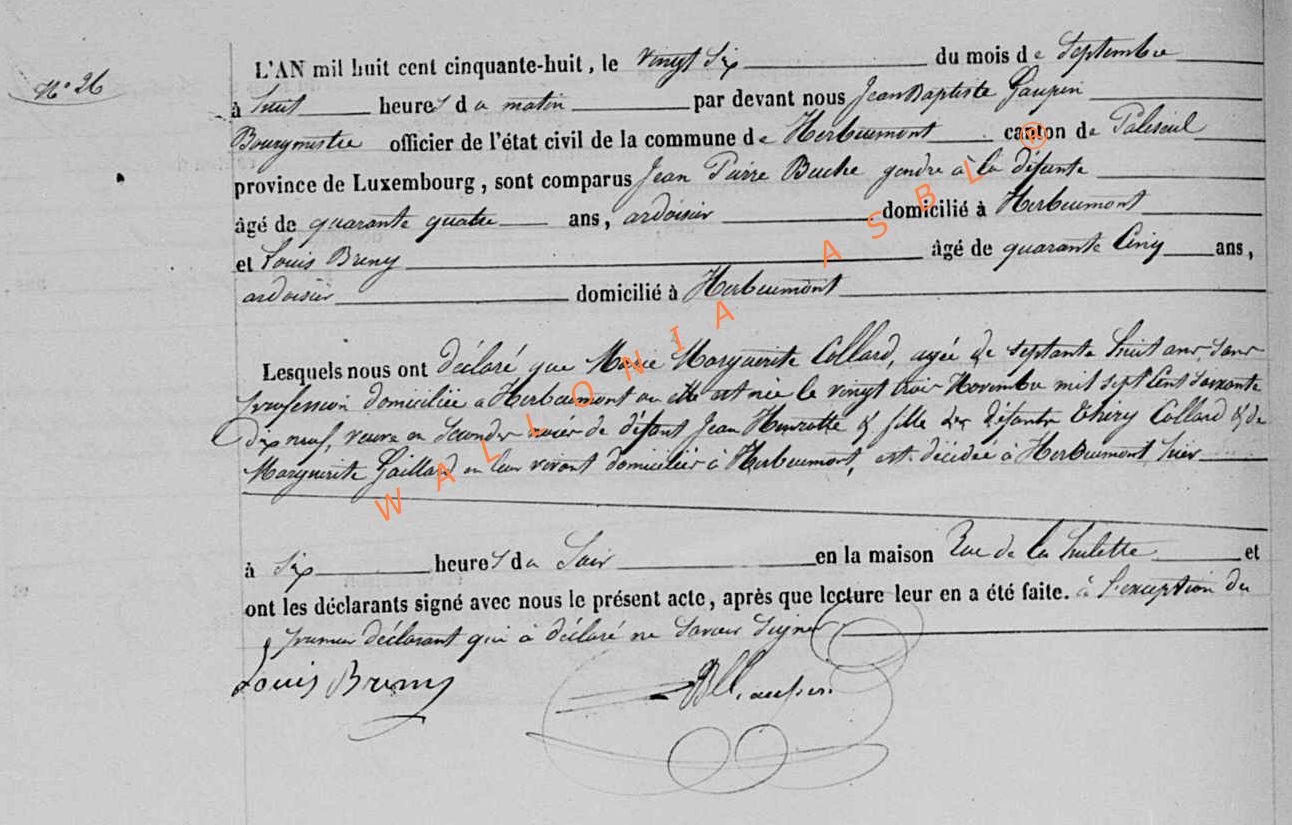 N° 26
L'AN mil huit cent cinquante-huit, le vingt six du mois de Septembre
à huit heures du matin par devant nous Jean Baptiste Gaupin
Bourgmestre officier de l'état civil de la commune de Herbeumont canton de Paliseul
province de Luxembourg, sont comparus Jean Pierre Buche gendre à la défunte
âgé de quarante quatre ans, ardoisier domicilié à Herbeumont
et Louis Breny âgé de quarante Cinq ans,
ardoisier domicilié à Herbeumont
Lesquels nous ont déclaré que Marie Marguerite Collard, agée de septante huit ans, sans
profession domiciliée a Herbeumont ou elle est née le vingt trois Novembre mil sept Cent soixante
dix neuf, veuve en secondes noces de défunt Jean Henrotte & fille des défunts Thiry Collard & de
Marguerite Gaillard en leur vivant domiciliés à Herbeumont, est décédée à Herbeumont hier
à six heures du Soir en la maison Rue de la et
ont les déclarants signé avec nous le présent acte, après que lecture leur en a été faite. à l'exception du
premier déclarant qui à déclaré ne savoir signer
Louis Breny
WALLONIA ASBL ®